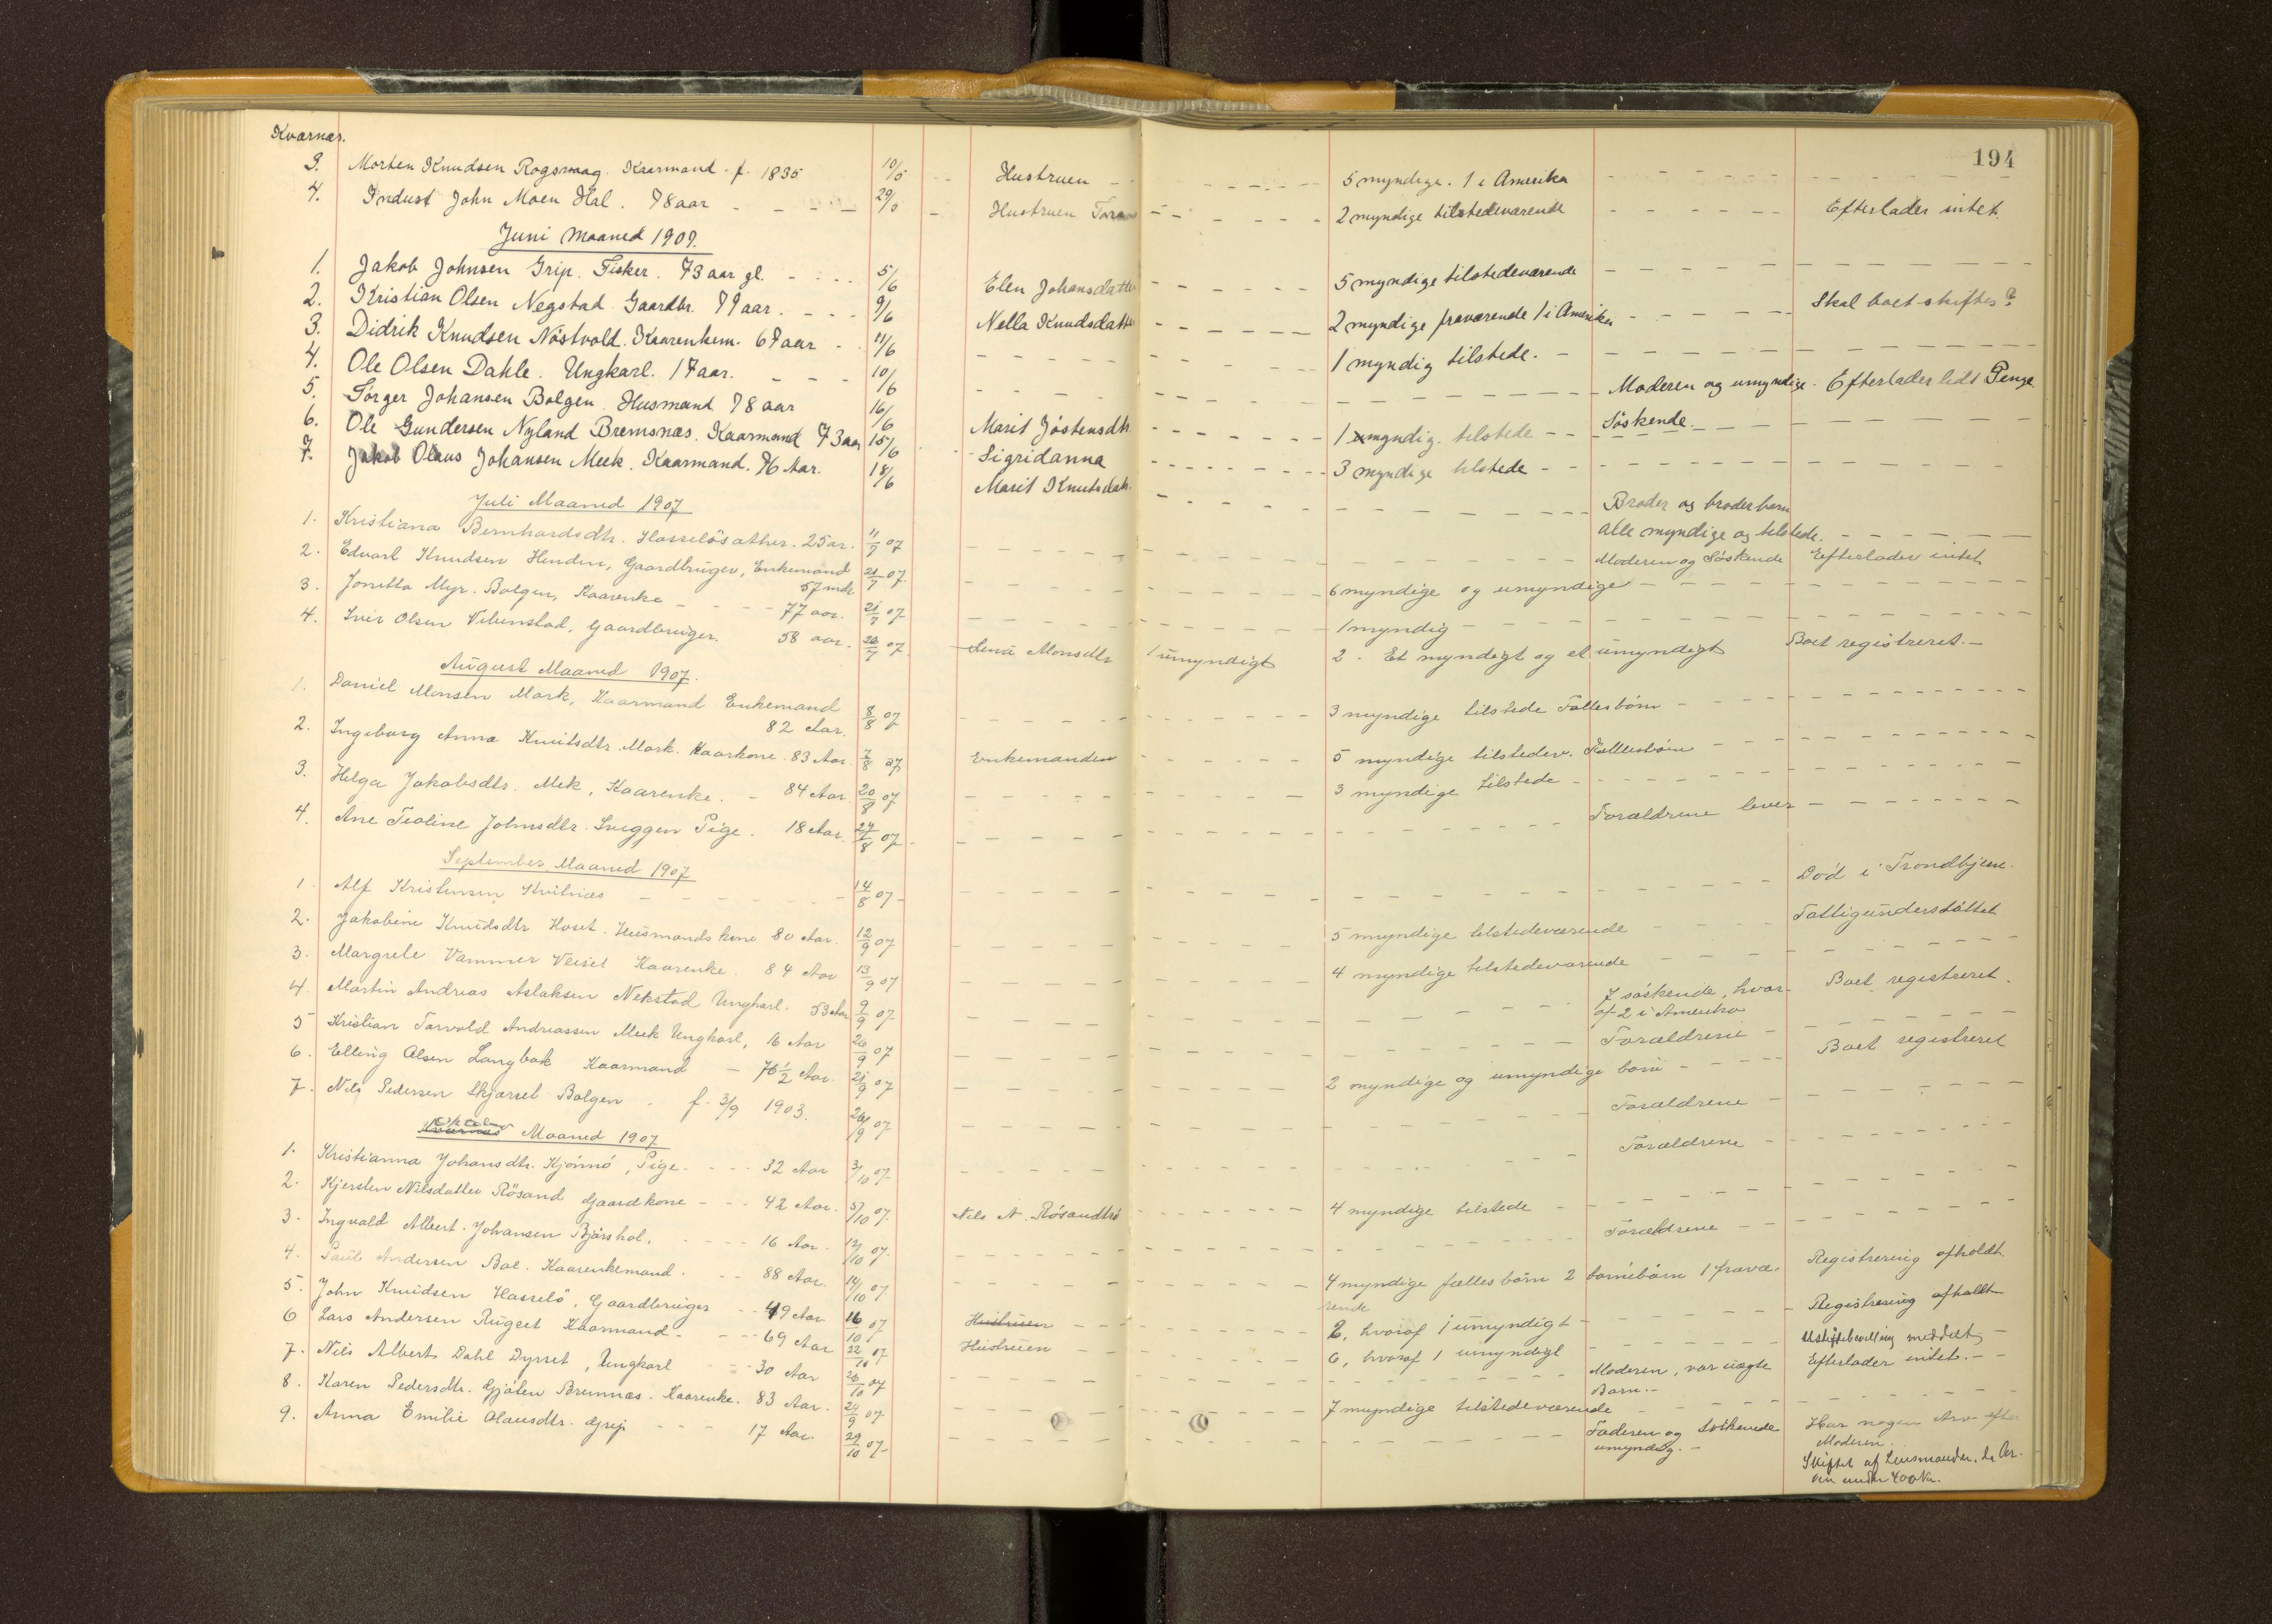 194
Kværnæs.
3. Morten Knudsen Rogsmag. Kaarmand. f. 1835 10/5 Hustruen 5 myndige. 1 i Amerika
4. Indust John Moen Hal. 78 aar 29/5 Hustruen 2 myndige tilstedeværende Efterlader intet.
Juni Maaned 1907.
1. Jakob Johnsen Grip. Fisker. 73 aar gl. 5/6 Elen Johansdatter 5 myndige tilstedeværende
2. Kristian Olsen Negstad Gaardbr. 79 aar. 9/6 Nella Knudsdatter 2 myndige fraværende 1 i Amerika Skal boet skiftes?
3. Didrik Knudsen Nöstvold. Kaarenkem. 67 aar 11/6 1 myndig tilstede.
4. Ole Olsen Dahle. Ungkarl. 17 aar. 10/6 Moderen og umyndige Söskende. Efterlader lidt Penge
5. Törger Johansen Bolgen Husmand 78 aar 16/6 Marit Jöstensdtr. 1 myndig tilstede
6. Ole Gundersen Nyland Bremsnæs. Kaarmand 73 aar 15/6 Sigridanna 3 myndige tilstede
7. Jakob Olaus Johansen Meek. Kaarmand. 76 Aar. 18/6 Marit Knutsdatr. Broder og broderbarn
alle myndige og tilstede.
Juli Maaned 1907
1. Kristiana Bernhardsdtr. Hasselösæther. 25 ar. 11/7 07 Moderen og Söskende Efterlader intet
2. Edvarl Knudsen Henden, Gaardbruger, Enkemand 57 21/7 07 6 myndige og umyndige
3. Jonetta Myr. Bolgen, Kaarenke 77 aar. 21/7 07 1 myndig
4. Iver Olsen Vebenstad, Gaardbruger. 58 aar. 26/7 07. Lena Monsdtr 1 umyndigt 2. Et myndigt og et umyndigt Boet registreret.
August Maaned 1907.
1. Daniel Monsen Mork, Kaarmand Enkemand
82 Aar. 8/8 07 3 myndige tilstede Fællesbörn
2. Ingeborg Anna Knutsdtr. Mork. Kaarkone. 83 Aar. 7/8 07 Enkemanden 5 myndige tilstedev. Fællesbörn
3. Helga Jakobsdtr. Mek, Kaarenke. 84 Aar. 20/8 07 3 myndige tilstede
4. Ane Teoline Johnsdtr. Sveggen Pige. 18 Aar. 27/8 07 Forældrene lever
September Maaned 1907
1. Alf Kristensen Kvitnæs 14/8 07 Död i Trondhjem.
2. Jakobine Knudsdtr Hoset. Husmandskone 80 Aar. 12/9 07 5 myndige tilstedeværende Fattigunderstöttet
3. Margrete Vammer Veiset Kaarenke. 84 Aar 13/9 07 4 myndige tilstedeværende
4. Martin Andreas Aslaksen Nekstad Ungkarl. 53 Aar 9/9 07 7 söskende, hvor-
af 2 i Amerika Boet registreret.
5 Kristian Torvald Andreassen Meek Ungkarl, 16 Aar 26/9 07 Forældrene
6. Elling Olsen Langbak Kaarmand 76 1/2 Aar. 21/9 07 2 myndige og umyndige börn Boet registreret
7. Nils Pedersen Skjærset Bolgen f. 3/9 1903. 26/9 07 Forældrene
Oktober Maaned 1907
1. Kristianna Johansdtr. Kjönnö, Pige. 32 Aar 3/10 07 Forældrene
2. Kjersten Nilsdatter Rösand Gaardkone 42 Aar. 5/10 07. Nils N. Rösandhø 4 myndige tilstede
3. Ingvald Albert Johansen Björshol. 16 Aar. 12/10 07. Forældrene
4. Paul Andersen Boe. Kaarenkemand. 88 Aar. 14/10 07 4 myndige fællesbörn 2 börnebörn 1 fravæ-
rende Registrering afholdt
5. John Knudsen Hasselö, Gaardbruger 49 Aar 16/10 07 Hustruen 2, hvoraf 1 umyndigt Registrering afholdt
6 Lars Andersen Rugset Kaarmand 69 Aar 22/10 07 Hustruen 6, hvoraf 1 umyndigt Uskiftebevilling meddelt
7. Nils Albert Dahl Dyrset, Ungkarl 30 Aar 26/10 07 Moderen, var uægte
Barn. Efterlader intet.
8. Karen Pedersdtr. Gjöten Bremnæs. Kaarenke. 83 Aar. 24/9 07. 7 myndige tilstedeværende
9. Anna Emilie Olausdtr. Grip 17 Aar. 29/10 07 Faderen og Söskende
umyndig. Har nogen Arv efter
Moderen.
Skiftet af Lensmanden, da Ar-
ven under 400 Kr.